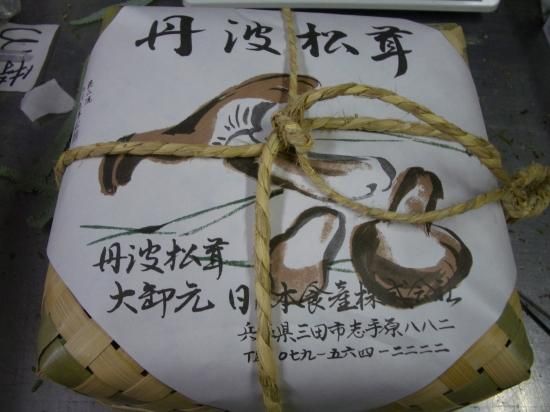 丹波松茸
丹波松茸
大卸元 日本食産株式会社
兵庫県三田市志手原八八二
TEL 〇七九-五六四-二二二二